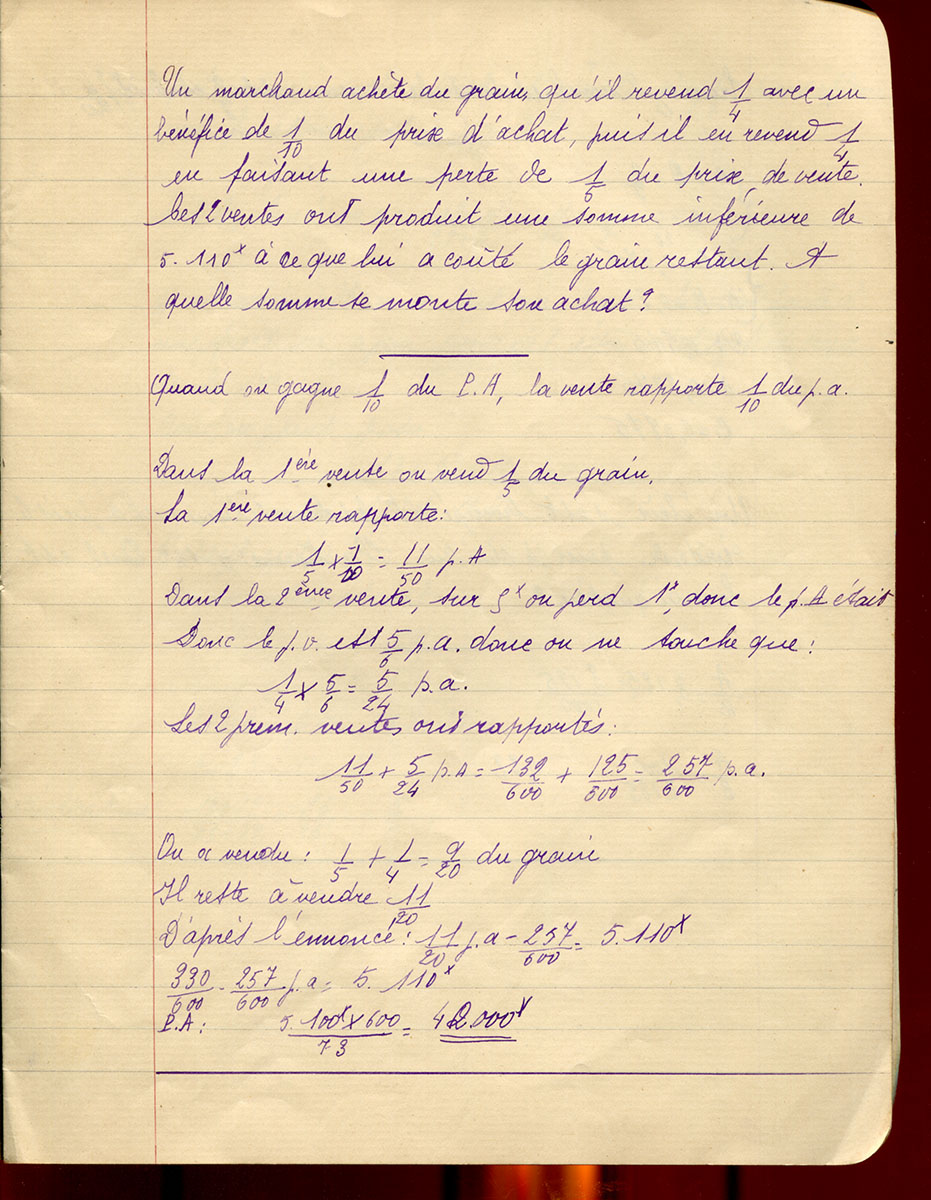 Un marchand achète du grain, qu'il revend 1/4 avec un
bénéfice de 1/10 du prix d'achat, puis il en revend 1/4
en faisant une perte de 1/5 du prix de vente.
Les 2 ventes ont produit une somme inférieure de
5.110ˣ à ce que lui a coûté le grain restant. A
quelle somme se monte son achat?
Quand on gagne 1/10 du P.A, la vente rapporte 1/10 du p.a.
Dans la 1ère vente on vend 1/5 du grain.
La 1ère vente rapporte:
1/5 x 1/10 = 11/50 p.A
Dans la 2ème vente, sur 5ˣ on perd 1ˣ, donc le p.A était
Donc le p.v. est 5/6 p.a. donc on ne touche que:
1/4 x 5/6 = 5/24 p.a.
Les 2 prem. ventes ont rapportés:
11/50 + 5/24 p.A = 132/600 + 125/600 = 257/600 p.a.
On a vendu: 1/5 + 1/4 = 9/20 du grain
Il reste à vendre 11/20
D'après l'énnoncé: 11/20 p.a - 257/600 = 5.110ˣ
330/600 - 257/600 p.a = 5.110ˣ
P.A: 5.100ˣ x 600/73 = 42.000ˣ